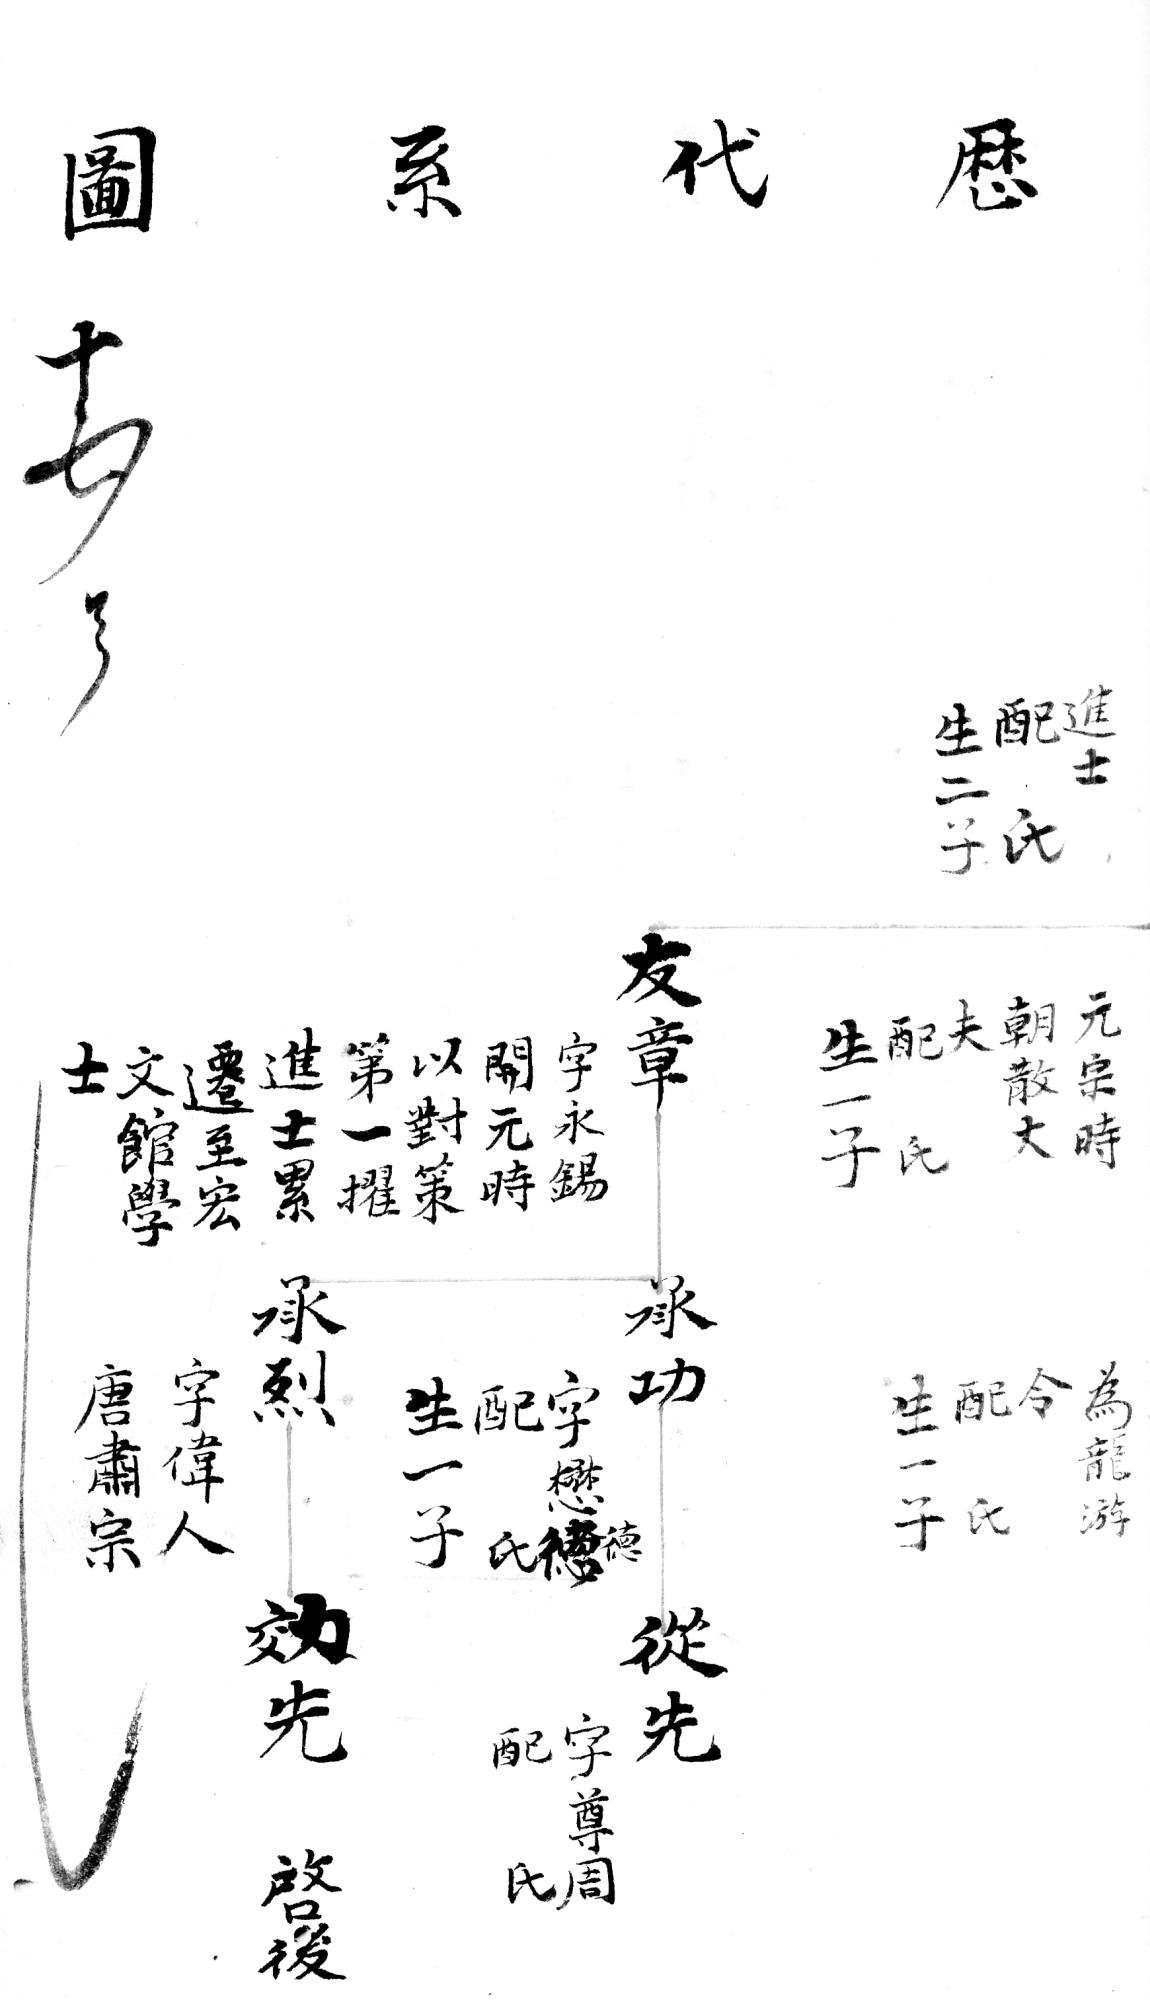 歷代系圖
進士
配氏
生二子
元宗時
朝散大
夫
配氏
生一子
為龍游
令
配氏
生一子
友章
字永錫
開元時
以對策
第一擢
進士累
遷至宏
文館學
士
承功
字懋德
德
配氏
生一子
承烈
字偉人
唐肅宗
從先
字尊周
配氏
効先
啓後